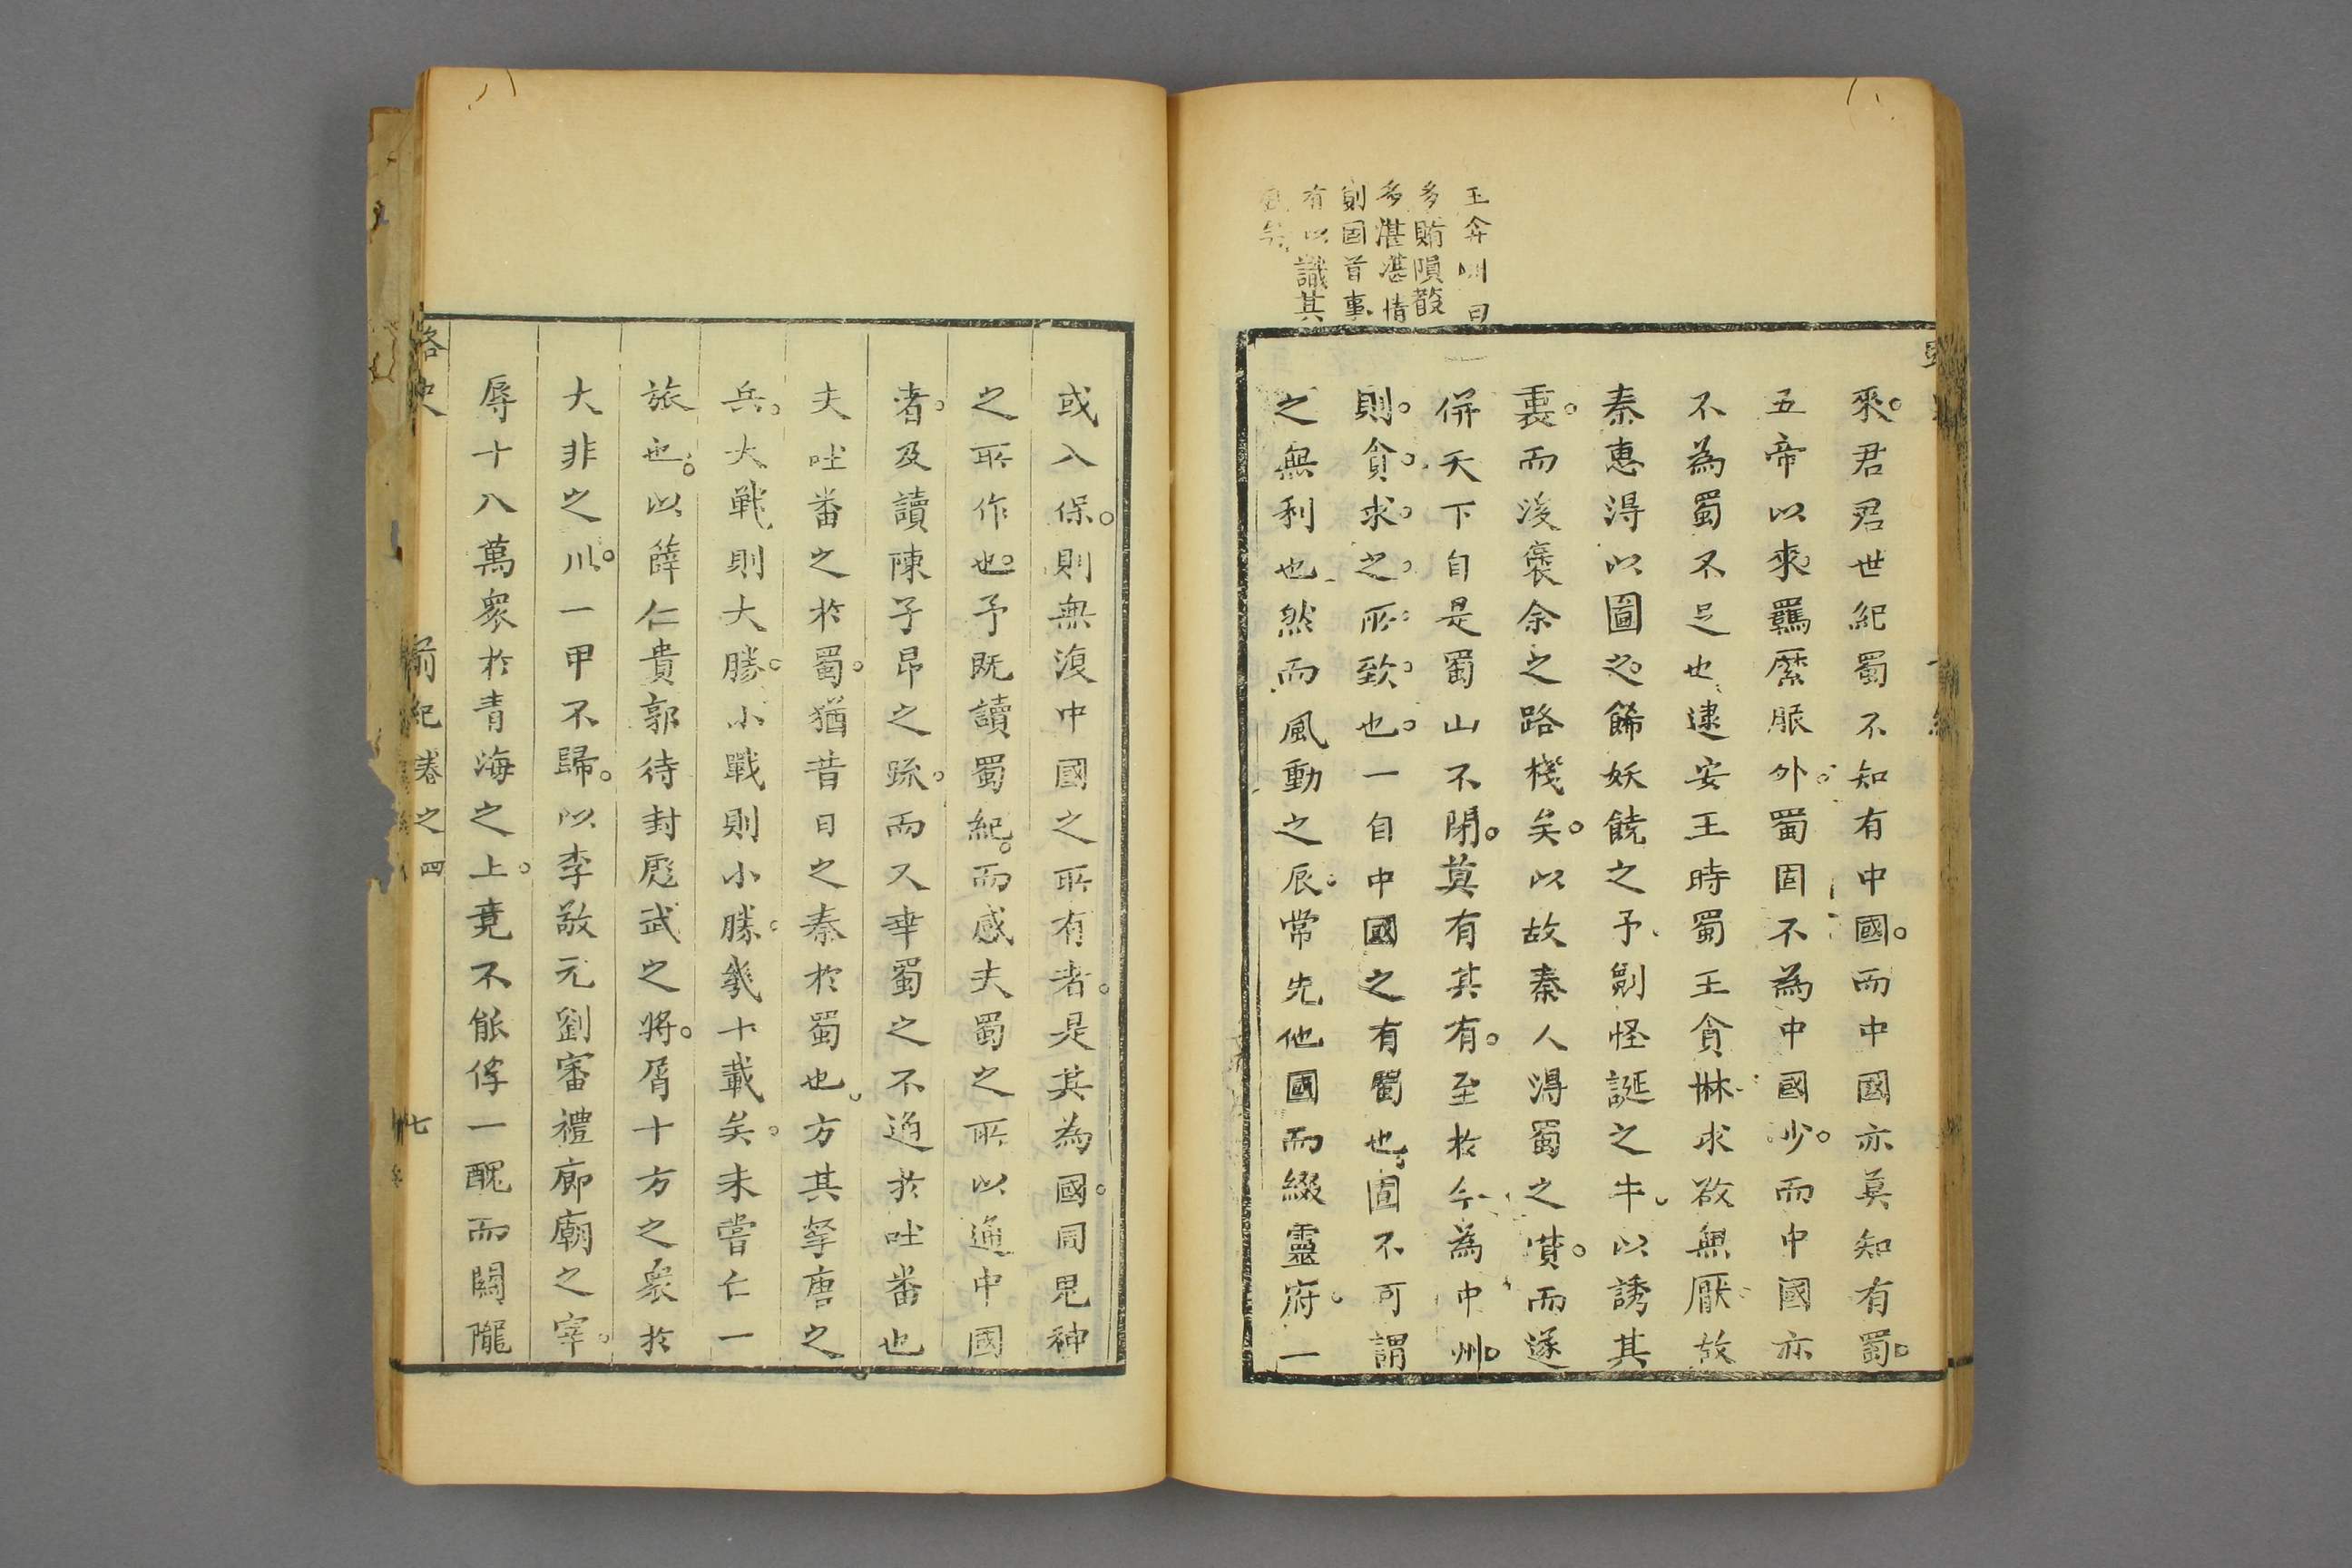 王弇州曰
多賄隕瞉
多湛湛情
則國首事
有以識其
來君君世紀蜀不知有中國而中國亦莫知有蜀
五帝以來羈縻服外蜀固不為中國少而中國亦
不為蜀不足也逮安王時蜀王貪惏求欲無厭故
秦惠得以圖之餙妖饒之予創怪誕之牛以誘其
衷而浚褒余之路棧矣以故秦人得蜀之貲而遂
併天下自是蜀山不閉莫有其有至於今為中州
則貪求之所致也一自中國之有蜀也固不可謂
之無利也然而風動之辰常先他國而綴靈府一
或入保則無復中國之所有者是其為國同鬼神
之所作也予既讀蜀紀而感夫蜀之所以通中國
者及讀陳子昂之疏而又幸蜀之不通於吐蕃也
夫吐蕃之於蜀猶昔日之秦於蜀也方其拏唐之
兵大戰則大勝小戰則小勝幾十載矣未嘗亡一
旅也以薛仁貴郭待封彪武之將屠十方之眾於
大非之川一甲不歸以李敬元劉審禮廊廟之宰
辱十八萬眾於青海之上竟不能俘一醜而關隴
路史
前紀卷之四
七